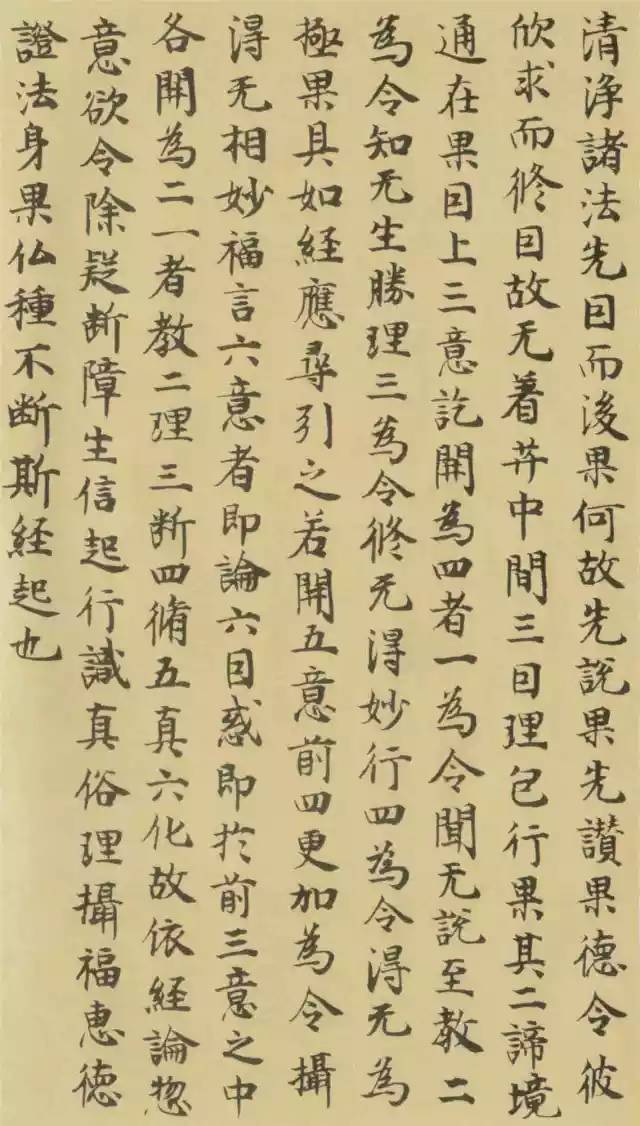 清浄諸法先因而後果何故先説果先讃果德令彼
欣求而修因故无着艹中間三因理包行果其二諦境
通在果因上三意訖開為四者一為令聞无説至教二
為令知无生勝理三為令修无得妙行四為令得无為
極果具如経應尋引之若開五意前四更加為令攝
得无相妙福言六意者即論六因惑即於前三意之中
各開為二一者教二理三断四脩五真六化故依経論惣
意欲令除疑断障生信起行識真俗理攝福恵徳
證法身果仏種不断斯経起也